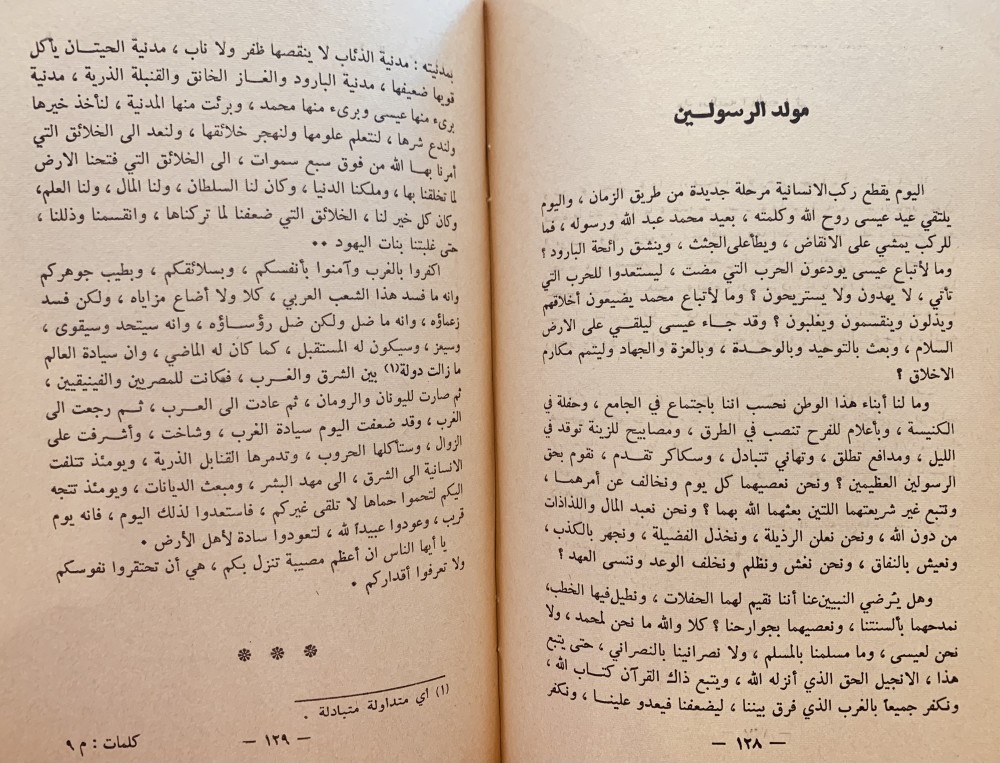 مولد الرسولـــين
اليوم يقطع ركب الانسانية مرحلة جديدة من طريق الزمان ، واليوم
يلتقي عيد عيسى روح الله وكلمته ، بعيد محمد عبد الله ورسوله ، فما
للركب يمشي على الانقاض ، ويطأ على الجثث ، وينشق رائحة البارود ؟
وما لأتباع عيسى يودعون الحرب التي مضت ، ليستعدوا للحرب التي
تأتي ، لا يهدون ولا يستريحون ؟ وما لأتباع محمد يضيعون أخلاقهم
ويذلون وينقسمون ويغلبون ؟ وقد جـاء عيسى ليلقي على الارض
السلام ، وبعث بالتوحيد وبالوحدة ، وبالعزة والجهاد وليتمم مكارم
الاخلاق ؟
وما لنا أبناء هذا الوطن نحسب اننا باجتماع في الجامع ، وحفلة في
الكنيسة ، وبأعلام للفرح تنصب في الطرق ، ومصابيح للزينة توقد في
الليل ، ومدافع تطلق ، وتهاني تتبادل ، وسكاكر تقدم ، نقوم بحق
الرسولين العظيمين ؟ ونحن نعصيهما كل يوم ونخالف عن أمرهمـا ،
ونتبع غير شريعتهما اللتين بعثهما الله بهما ؟ ونحن نعبد المال واللذاذات
من دون الله ، ونحن نعلن الرذيلة ، ونخذل الفضيلة ، ونجهر بالكذب ،
ونعيش بالنفاق ، ونحن نغش ونظلم ونخلف الوعد وننسى العهد ؟
وهل يُرضي النبيين عنا أننا نقيم لهما الحفلات ، ونطيل فيها الخطب،
نمدحهما بألسنتنا ، ونعصيهما بجوارحنا ؟ كلا والله ما نحن لمحمد ، ولا
نحن لعيسى ، وما مسلمنا بالمسلم ، ولا نصرانينا بالنصراني ، حتى يتبع
هذا ، الانجيل الحق الذي أنزله الله ، ويتبع ذاك القرآن كتـاب الله ،
ونكفر جميعاً بالغرب الذي فرق بيننا ، ليضعفنا فيعدو علينـا ، ونكفر
— ١٢٨ —
بمدنيته : مدنية الذئاب لا ينقصها ظفر ولا ناب ، مدنية الحيتـان يأكل
قويها ضعيفها ، مدنية البارود والغـاز الخانق والقنبلة الذرية ، مدنية
برىء منها عيسى وبرىء منها محمد ، وبرئت منها المدنية ، لنأخذ خيرها
ولندع شرها ، لنتعلم علومها ولنهجر خلائقها ، ولنعد الى الخلائق التي
أمرنا بهـا الله من فوق سبع سموات ، الى الخلائق التي فتحنا الارض
لما تخلقنا بها ، وملكنا الدنيا ، وكان لنا السلطان ، ولنا المال ، ولنا العلم،
وكان كل خير لنا ، الخلائق التي ضعفنا لما تركناها ، وانقسمنا وذللنا ،
حتى غلبتنا بنات اليهود ••
اكفروا بالغرب وآمنوا بأنفسكم ، وبسلائقكم ، وبطيب جوهركم
وانه ما فسد هذا الشعب العربي ، كلا ولا أضاع مزاياه ، ولكن فسد
زعماؤه ، وانه ما ضل ولكن ضل رؤسـاؤه ، وانه سيتحد وسيقوى ،
وسيعز ، وسيكون له المستقبل ، كما كان له الماضي ، وان سيادة العالم
ما زالت دولة(١) بين الشرق والغـرب ، فكانت للمصريين والفينيقيين ،
ثم صارت لليونان والرومان ، ثم عادت الى العـرب ، ثـم رجعت الى
الغرب ، وقد ضعفت اليوم سيادة الغرب ، وشاخت ، وأشرفت على
الزوال ، وستأكلها الحروب ، وتدمرها القنابل الذرية ، ويومئذ تتلفت
الانسانية الى الشرق ، الى مهد البشر ، ومبعث الديانات ، ويومئذ تتجه
اليكم لتحموا حماها لا تلقى غيركم ، فاستعدوا لذلك اليوم ، فانه يوم
قريب ، وعودوا عبيداً لله ، لتعودوا سادة لأهل الأرض •
يا أيها الناس ان أعظم مصيبة تنزل بكم ، هي أن تحتقروا نفوسكم
ولا تعرفوا أقداركم •
* * *
(١) أي متداولة متبادلة .
— ١٢٩ —
كلمات : م ٩